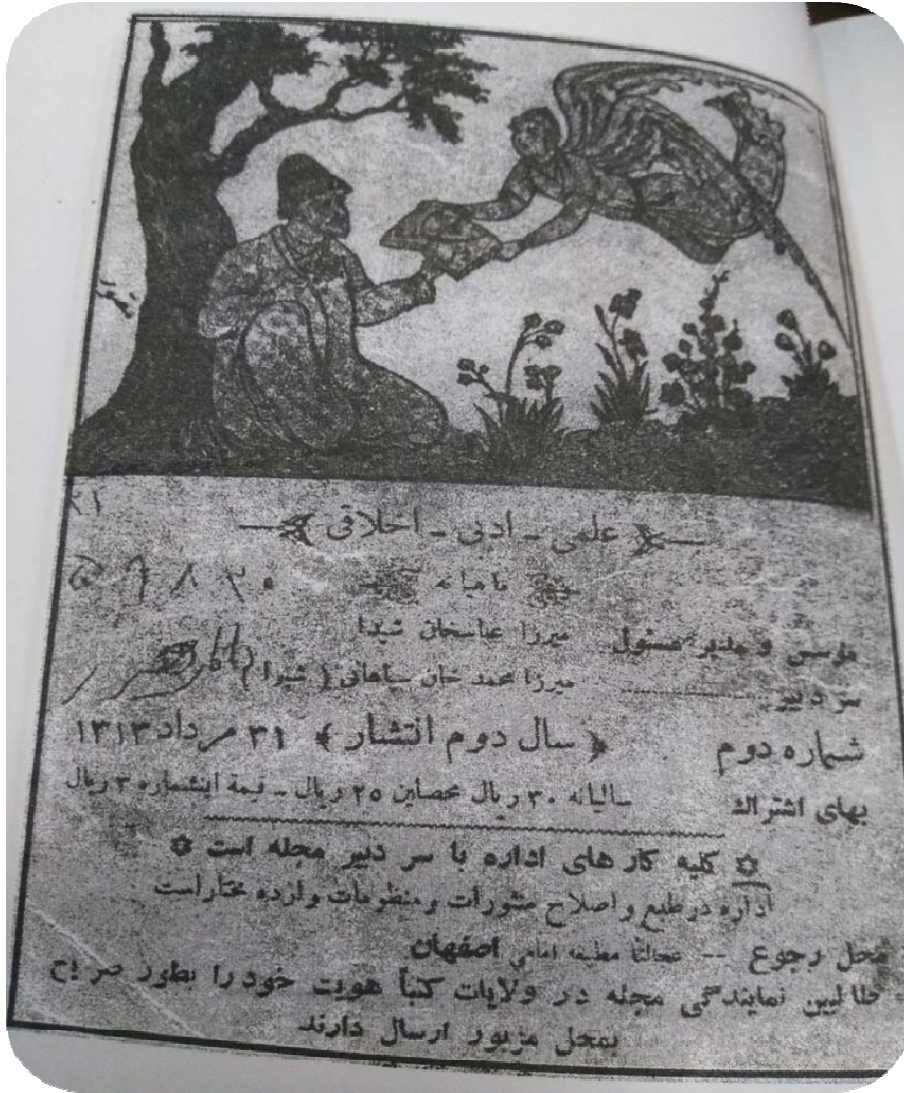 علمی - ادبی - اخلاقی
ماهیانه
۵۹۸۳۰
مؤسس و مدیر مسئول میرزا عباسخان شیدا
سر دبیر میرزا محمد خان سپاهانی (شیوا)
شماره دوم ﴿ سال دوم انتشار ﴾ ۳۱ مرداد ۱۳۱۳
بهای اشتراك سالیانه ۳۰ ریال محصلین ۲۵ ریال - قیمة اینشماره ۳ ریال
کلیه کار های اداره با سر دبیر مجله است
اداره در طبع و اصلاح منثورات و منظومات وارده مختار است
محل رجوع -- عجالتا مطبعه امامی اصفهان
طالبین نمایندگی مجله در ولایات کتباً هویت خود را بطور صریح
بمحل مزبور ارسال دارند